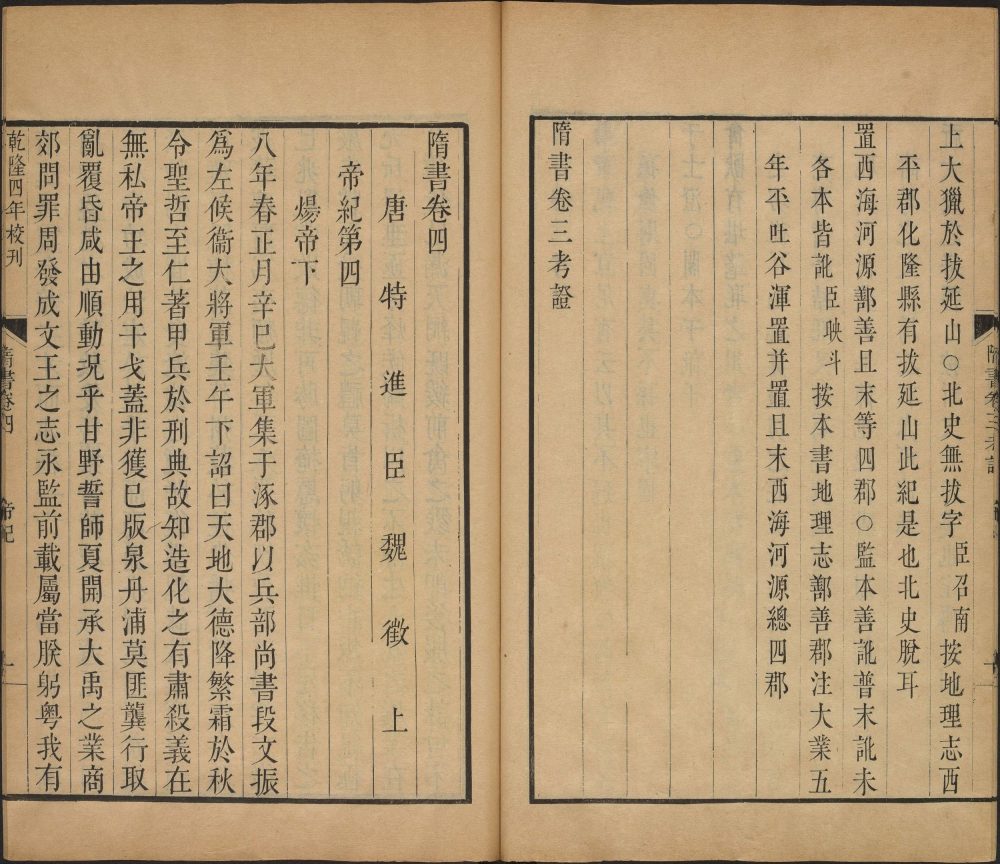 上大獵於拔延山○北史無拔字臣召南按地理志西
平郡化隆縣有拔延山此紀是也北史脫耳
置西海河源鄯善且末等四郡○監本善訛普末訛未
各本皆訛臣映斗按本書地理志鄯善郡注大業五
年平吐谷渾置并置且末西海河源總四郡
隋書卷三考證
隋書卷三考證
隋書卷四
唐特進臣魏徵上
帝紀第四
煬帝下
八年春正月辛巳大軍集于涿郡以兵部尚書段文振
爲左候衞大將軍壬午下詔曰天地大德降繁霜於秋
令聖哲至仁著甲兵於刑典故知造化之有肅殺義在
無私帝王之用干戈蓋非獲已版泉丹浦莫匪龔行取
亂覆昏咸由順動況乎甘野誓師夏開承大禹之業商
郊問罪周發成文王之志永監前載屬當朕躬粤我有
乾隆四年校刊
隋書卷四
帝紀
一